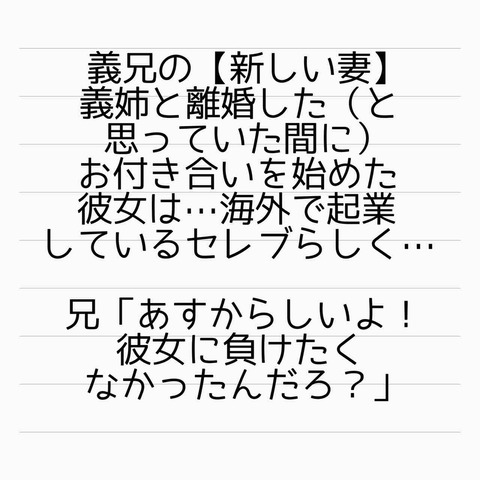 義兄の【新しい妻】
義姉と離婚した（と
思っていた間に）
お付き合いを始めた
彼女は…海外で起業
しているセレブらしく…
兄「あすからしいよ！
彼女に負けたく
なかったんだろ？」